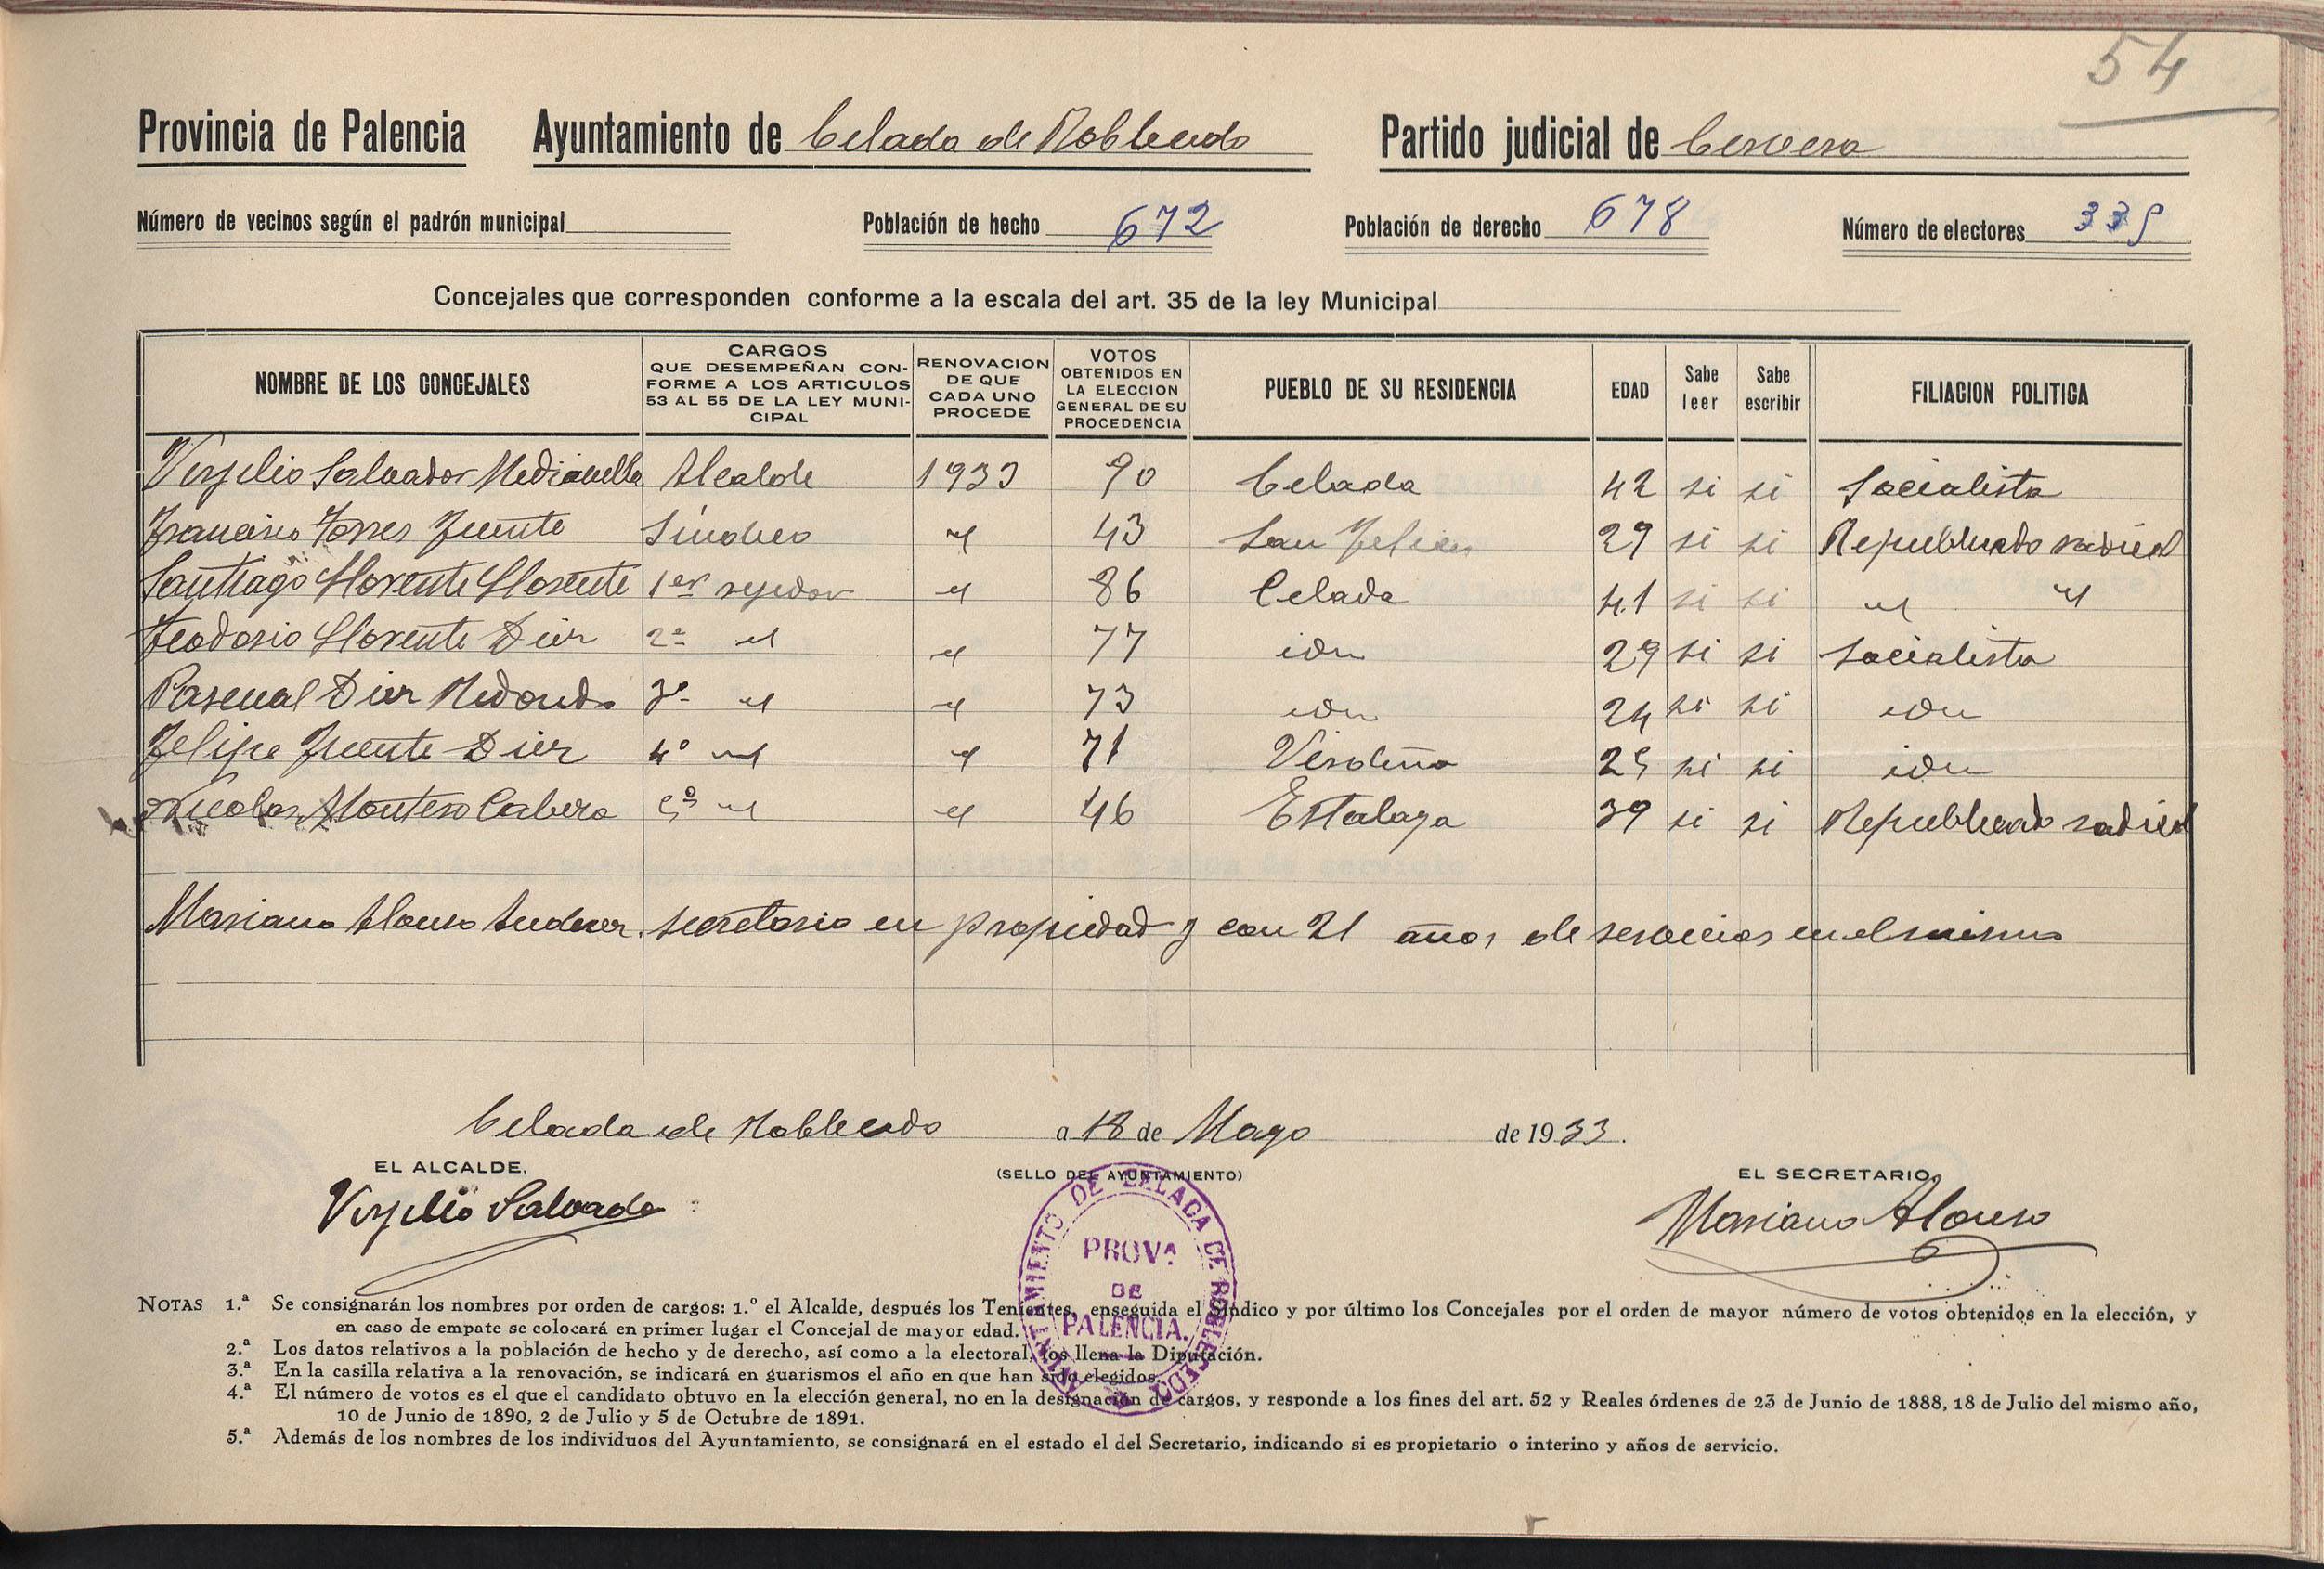 54
Provincia de Palencia Ayuntamiento de Celada de Robledo Partido judicial de Cervera
Número de vecinos según el padrón municipal Población de hecho 672 Población de derecho 678 Número de electores 339
Concejales que corresponden conforme a la escala del art. 35 de la ley Municipal
NOMBRE DE LOS CONCEJALES CARGOS QUE DESEMPEÑAN CONFORME A LOS ARTICULOS 53 AL 55 DE LA LEY MUNICIPAL RENOVACION DE QUE CADA UNO PROCEDE VOTOS OBTENIDOS EN LA ELECCION GENERAL DE SU PROCEDENCIA PUEBLO DE SU RESIDENCIA EDAD Sabe leer Sabe escribir FILIACION POLITICA
Virjilio Salvador Mediavilla Alcalde 1933 90 Celada 42 si si Socialista
Francisco Torres Fuente Síndico " 43 San Felices 29 si si Republicado radical
Santiago Llorente Llorente 1er rejidor " 86 Celada 41 si si " "
Teodosio Llorente Diez 2º " " 77 idn 29 si si Socialista
Pascual Diez Redondo 3º " " 73 idn 24 si si idn
Felipe Fuente Diez 4º " " 71 Verdeña 25 si si idn
Nicolas Montero Cabero 5º " " 46 Estalaya 39 si si Republicado radical
Mariano Alonso secretario en propiedad y con 21 años de servicios en el mismo
Celada de Robledo a 18 de Mayo de 1933.
EL ALCALDE, (SELLO DEL AYUNTAMIENTO) EL SECRETARIO,
Virjilio Salvador Mariano Alonso
AYUNTAMIENTO DE CELADA DE ROBLEDO
PROVA
DE
PALENCIA.
NOTAS 1.ª Se consignarán los nombres por orden de cargos: 1.º el Alcalde, después los Tenientes, enseguida el Síndico y por último los Concejales por el orden de mayor número de votos obtenidos en la elección, y
en caso de empate se colocará en primer lugar el Concejal de mayor edad.
2.ª Los datos relativos a la población de hecho y de derecho, así como a la electoral, los llena la Diputación.
3.ª En la casilla relativa a la renovación, se indicará en guarismos el año en que han sido elegidos.
4.ª El número de votos es el que el candidato obtuvo en la elección general, no en la designación de cargos, y responde a los fines del art. 52 y Reales órdenes de 23 de Junio de 1888, 18 de Julio del mismo año,
10 de Junio de 1890, 2 de Julio y 5 de Octubre de 1891.
5.ª Además de los nombres de los individuos del Ayuntamiento, se consignará en el estado el del Secretario, indicando si es propietario o interino y años de servicio.